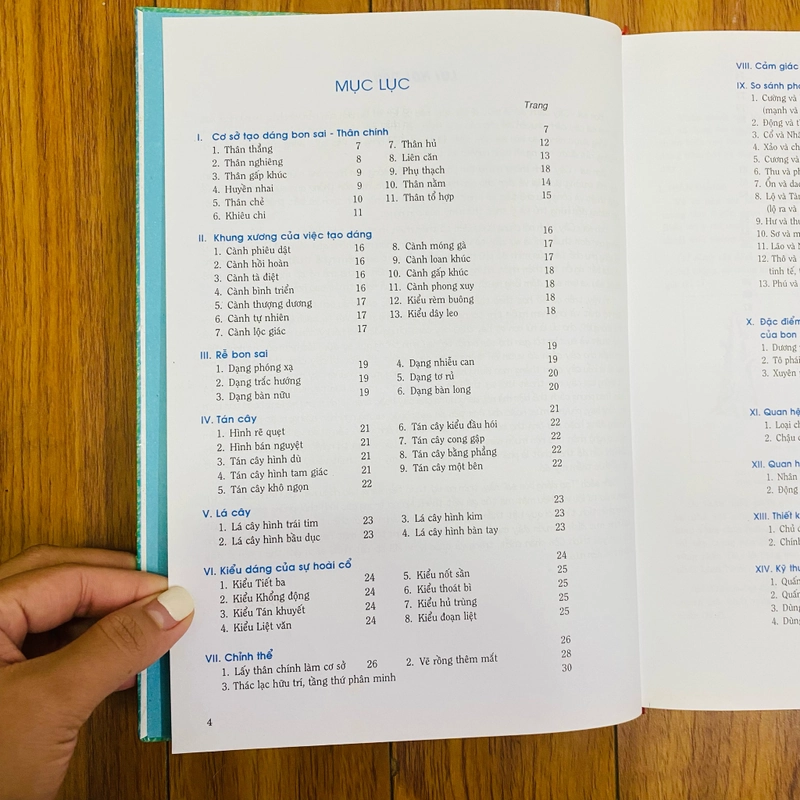 MỤC LỤC
Trang
I. Cơ sở tạo dáng bon sai - Thân chính 7
1. Thân thẳng 7 7. Thân hủ 12
2. Thân nghiêng 8 8. Liên căn 13
3. Thân gấp khúc 9 9. Phụ thạch 18
4. Huyền nhai 9 10. Thân nằm 14
5. Thân chẻ 10 11. Thân tổ hợp 15
6. Khiêu chi 11
II. Khung xương của việc tạo dáng 16
1. Cành phiêu dật 16 8. Cành móng gà 17
2. Cành hồi hoàn 16 9. Cành loan khúc 17
3. Cành tà điệt 16 10. Cành gấp khúc 18
4. Cành bình triển 16 11. Cành phong xuy 18
5. Cành thượng dương 17 12. Kiểu rèm buông 18
6. Cành tự nhiên 17 13. Kiểu dây leo 18
7. Cành lộc giác 17
III. Rễ bon sai 19
1. Dạng phóng xạ 19 4. Dạng nhiễu can 19
2. Dạng trắc hướng 19 5. Dạng tơ rủ 20
3. Dạng bàn nữu 19 6. Dạng bàn long 20
IV. Tán cây 21
1. Hình rẽ quẹt 21 6. Tán cây kiểu đầu hói 22
2. Hình bán nguyệt 21 7. Tán cây cong gập 22
3. Tán cây hình dù 21 8. Tán cây bằng phẳng 22
4. Tán cây hình tam giác 21 9. Tán cây một bên 22
5. Tán cây khô ngọn 22
V. Lá cây 23
1. Lá cây hình trái tim 23 3. Lá cây hình kim 23
2. Lá cây hình bầu dục 23 4. Lá cây hình bàn tay 23
VI. Kiểu dáng của sự hoài cổ 24
1. Kiểu Tiết ba 24 5. Kiểu nốt sần 25
2. Kiểu Khổng động 24 6. Kiểu thoát bì 25
3. Kiểu Tán khuyết 24 7. Kiểu hủ trũng 25
4. Kiểu Liệt văn 24 8. Kiểu đoạn liệt 25
VII. Chỉnh thể 26
1. Lấy thân chính làm cơ sở 26 2. Vẽ rồng thêm mắt 28
3. Thác lạc hữu trí, tầng thứ phân minh 30
4
VIII. Cảm giác
IX. So sánh
1. Cường và
(mạnh và
2. Động và
3. Cổ và
4. Xảo và
5. Cương và
6. Thu và
7. Ổn và
8. Lộ và
(lộ ra và
9. Hư và
10. Sơ và
11. Lão và
12. Thô và
tinh tế,
13. Phủ và
X. Đặc điểm
của bon
1. Dương
2. Tô
3. Xuyên
XI. Quan hệ
1. Loại
2. Chậu
XII. Quan
1. Nhân
2. Động
XIII. Thiết
1. Chủ
2. Chính
XIV. Kỹ
1. Quấn
2. Quấn
3. Dùng
4. Dùng